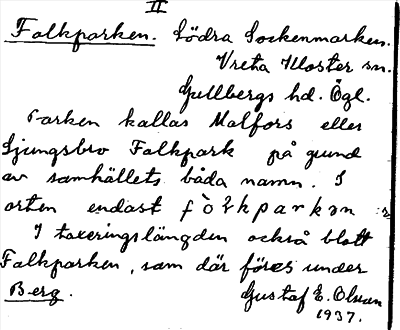 II
Folkparken. Södra Sockenmarken.
Vreta Kloster sn.
Gullbergs hd. Ögl.
Parken kallas Malfors eller
Ljungsbro Folkpark på grund
av samhällets båda namn. I
orten endast
I taxeringslängden också blott
Folkparken, som där föres under
Berg. Gustaf E. Olsson
1937.